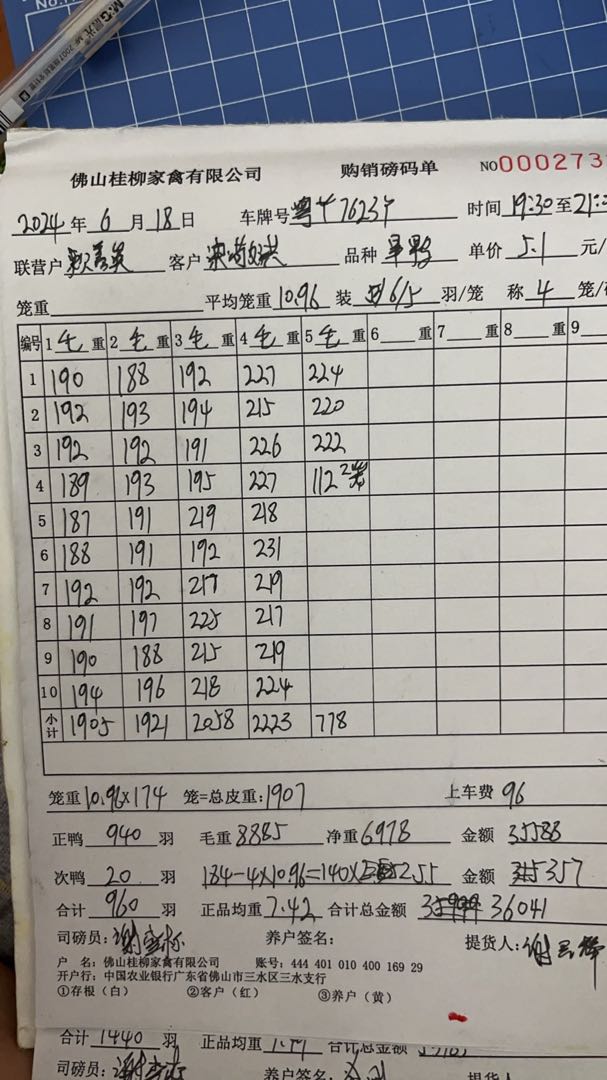 M&G 晨光
佛山桂柳家禽有限公司 购销磅码单 NO 000273
2024 年 6 月 18 日 车牌号 粤 76234 时间 19:30 至 21:
联营户 客户 品种 旱鸭 单价 5.1 元/
笼重 平均笼重 10.96 装 6/5 羽/笼 称 4 笼/
编号 1 毛 重 2 毛 重 3 毛 重 4 毛 重 5 毛 重 6 重 7 重 8 重 9
1 190 188 192 227 224
2 192 193 194 215 220
3 192 192 191 226 222
4 189 193 195 227 112 2笼
5 187 191 219 218
6 188 191 192 231
7 192 192 217 219
8 191 197 225 217
9 190 188 215 219
10 194 196 218 224
小计 1905 1921 2058 2223 778
笼重 10.96×174 笼=总皮重: 1907 上车费 96
正鸭 940 羽 毛重 8885 净重 6978 金额 35588
次鸭 20 羽 184-4×10.96=140× 2.55 金额 357
合计 960 羽 正品均重 7.42 合计总金额 36041
司磅员: 养户签名: 提货人:
户 名: 佛山桂柳家禽有限公司 账号: 444 401 010 400 169 29
开户行: 中国农业银行广东省佛山市三水区三水支行
①存根（白） ②客户（红） ③养户（黄）
合计 1440 羽 正品均重 合计总金额
司磅员: 养户签名: 提货人